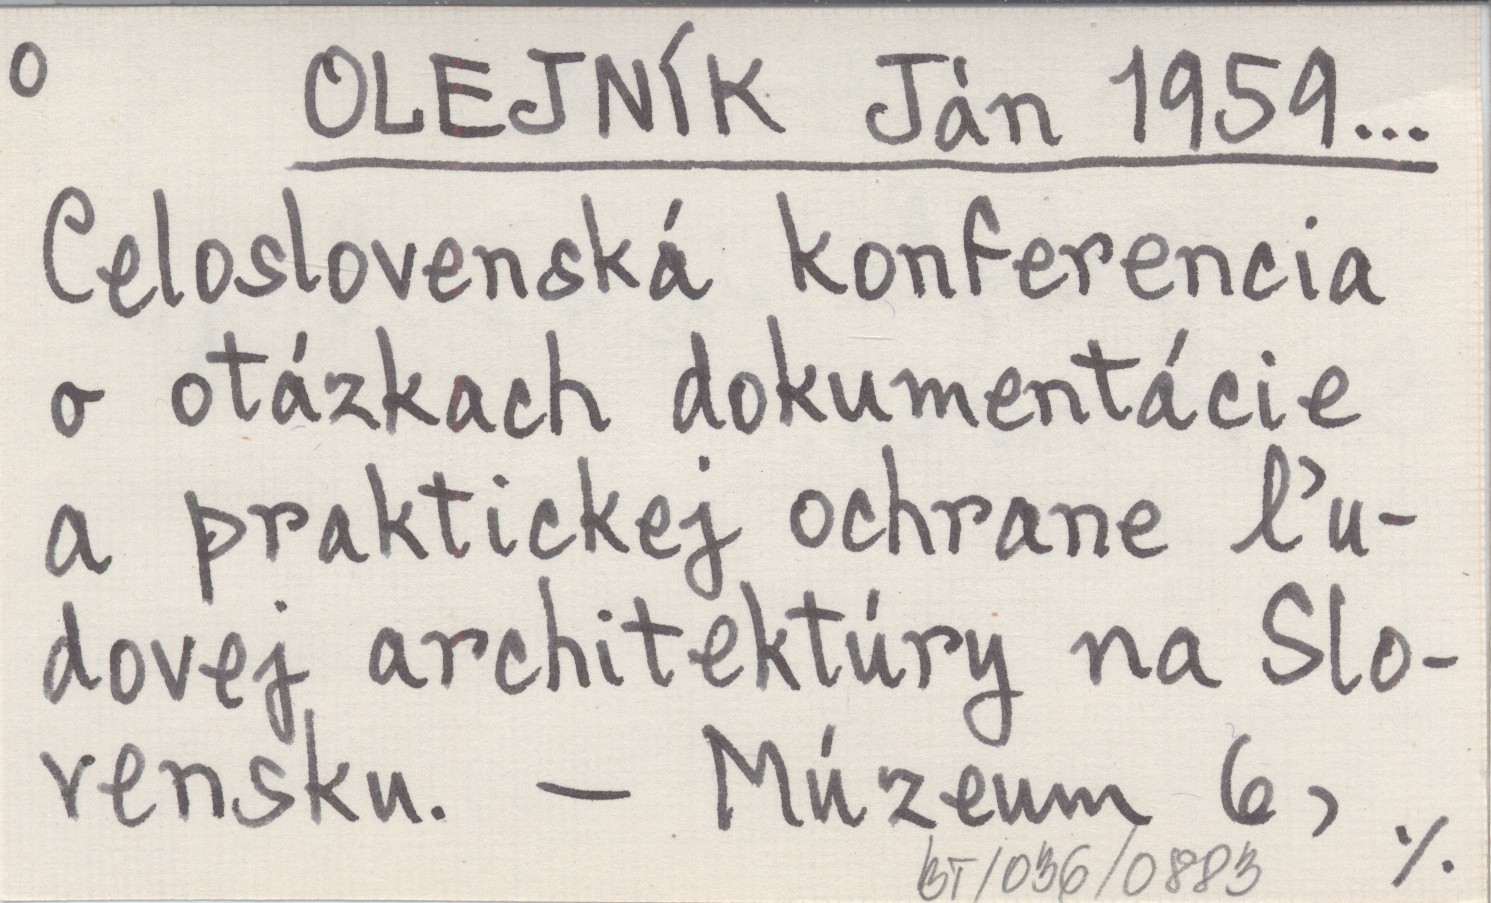 O OLEJNÍK Ján 1959...
Celoslovenská konferencia
o otázkach dokumentácie
a praktickej ochrane ľu-
dovej architektúry na Slo-
vensku. — Múzeum 6,
BT/036/0883 ·/.